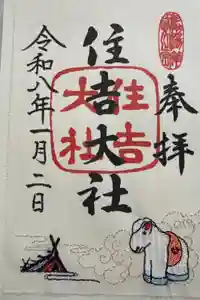 奉拝
住吉大社
住吉大社
令和八年一月二日